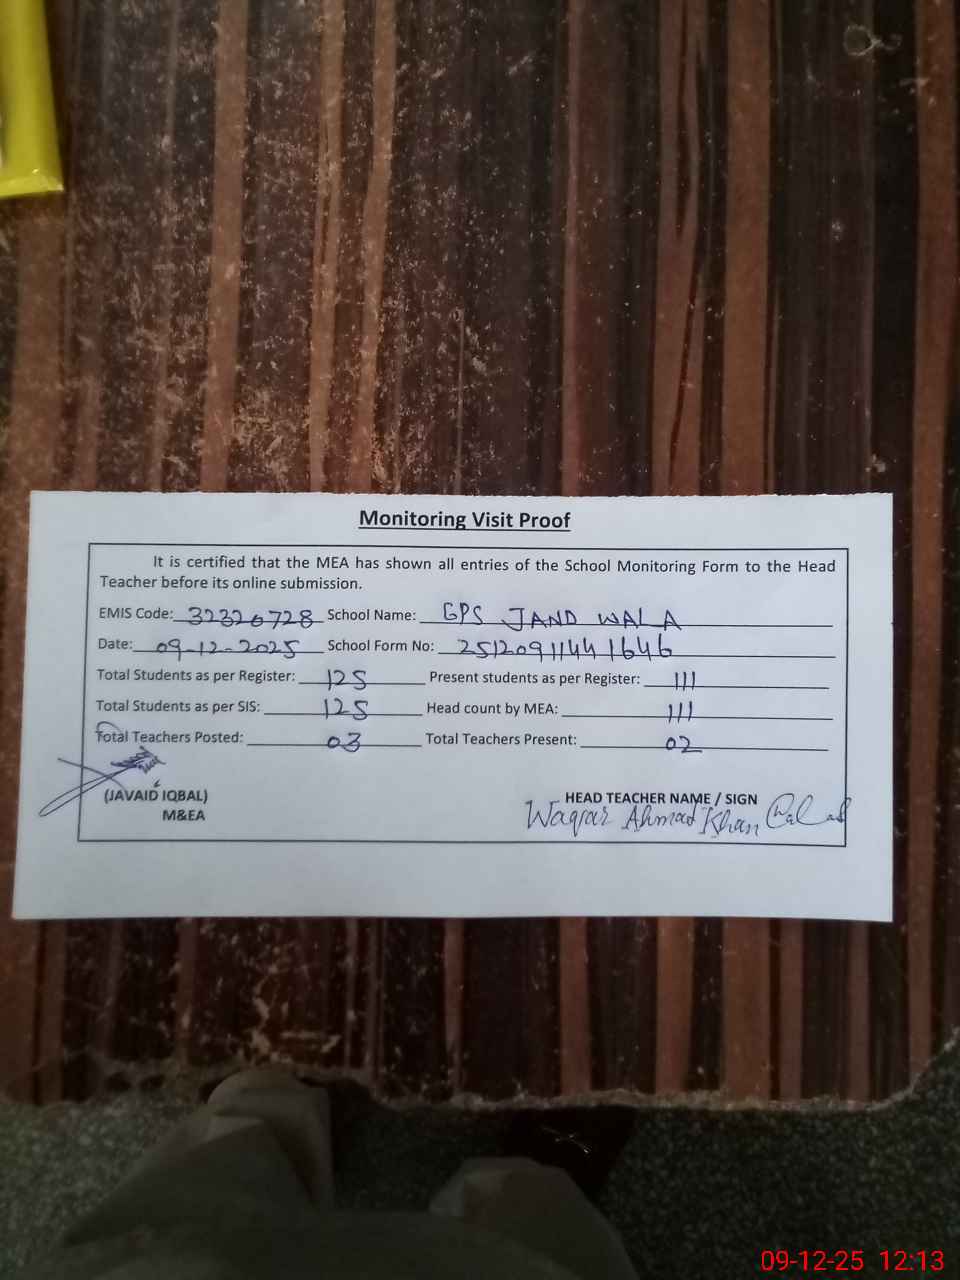 Monitoring Visit Proof
It is certified that the MEA has shown all entries of the School Monitoring Form to the Head
Teacher before its online submission.
EMIS Code: 32320728 School Name: GPS JAND WALA
Date: 09-12-2025 School Form No: 2512091144 1646
Total Students as per Register: 125 Present students as per Register: 111
Total Students as per SIS: 125 Head count by MEA: 111
Total Teachers Posted: 03 Total Teachers Present: 02
(JAVAID IQBAL)
M&EA
HEAD TEACHER NAME / SIGN
Waqar Ahmad Khan
09-12-25 12:13